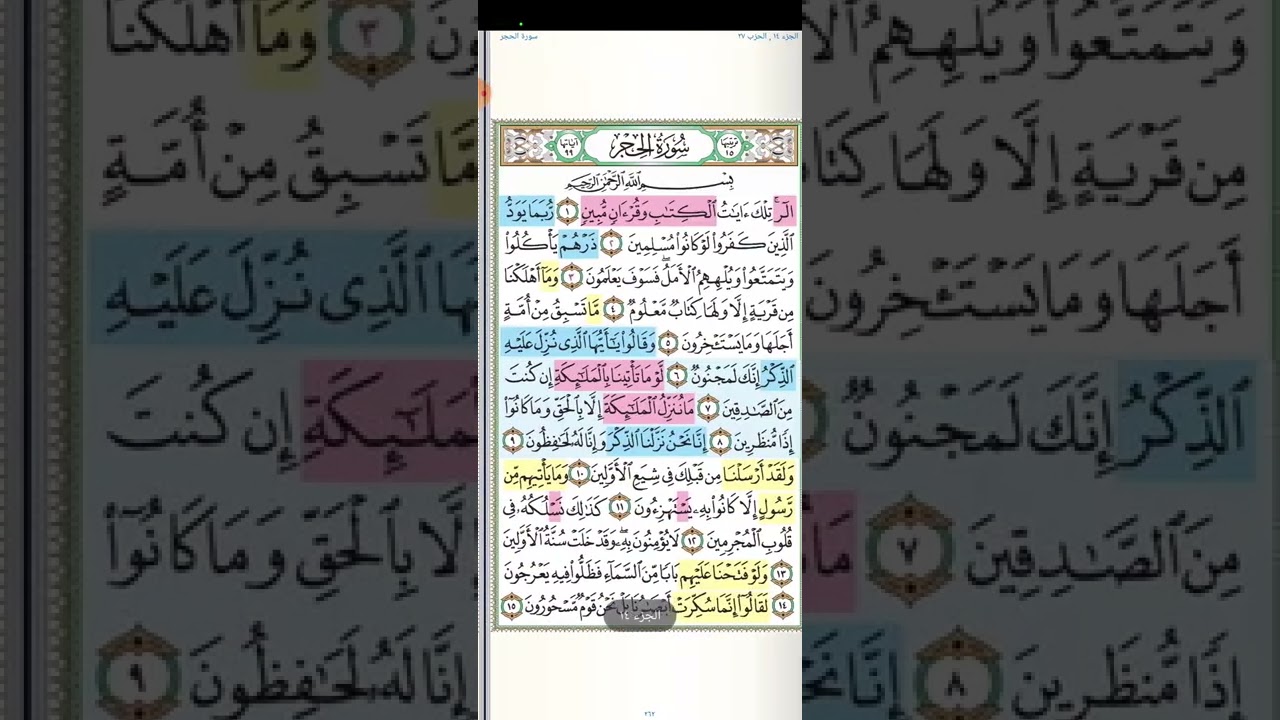 الجزء ١٤ , الحزب ٢٧
سورة الحجر
ترتيبها ١٥
سُورَةُ الحِجْرِ
آياتها ٩٩
بِسْمِ اللَّهِ الرَّحْمَٰنِ الرَّحِيمِ
الٓر ۚ تِلْكَ ءَايَٰتُ ٱلْكِتَٰبِ وَقُرْءَانٍ مُّبِينٍ ١ رُّبَمَا يَوَدُّ
ٱلَّذِينَ كَفَرُوا۟ لَوْ كَانُوا۟ مُسْلِمِينَ ٢ ذَرْهُمْ يَأْكُلُوا۟
وَيَتَمَتَّعُوا۟ وَيُلْهِهِمُ ٱلْأَمَلُ ۖ فَسَوْفَ يَعْلَمُونَ ٣ وَمَآ أَهْلَكْنَا
مِن قَرْيَةٍ إِلَّا وَلَهَا كِتَابٌ مَّعْلُومٌ ٤ مَّا تَسْبِقُ مِنْ أُمَّةٍ
أَجَلَهَا وَمَا يَسْتَـْٔخِرُونَ ٥ وَقَالُوا۟ يَٰٓأَيُّهَا ٱلَّذِى نُزِّلَ عَلَيْهِ
ٱلذِّكْرُ إِنَّكَ لَمَجْنُونٌ ٦ لَّوْ مَا تَأْتِينَا بِٱلْمَلَٰٓئِكَةِ إِن كُنتَ
مِنَ ٱلصَّٰدِقِينَ ٧ مَا نُنَزِّلُ ٱلْمَلَٰٓئِكَةَ إِلَّا بِٱلْحَقِّ وَمَا كَانُوٓا۟
إِذًا مُّنظَرِينَ ٨ إِنَّا نَحْنُ نَزَّلْنَا ٱلذِّكْرَ وَإِنَّا لَهُۥ لَحَٰفِظُونَ ٩
وَلَقَدْ أَرْسَلْنَا مِن قَبْلِكَ فِى شِيَعِ ٱلْأَوَّلِينَ ١٠ وَمَا يَأْتِيهِم مِّن
رَّسُولٍ إِلَّا كَانُوا۟ بِهِۦ يَسْتَهْزِءُونَ ١١ كَذَٰلِكَ نَسْلُكُهُۥ فِى
قُلُوبِ ٱلْمُجْرِمِينَ ١٢ لَا يُؤْمِنُونَ بِهِۦ ۖ وَقَدْ خَلَتْ سُنَّةُ ٱلْأَوَّلِينَ
١٣ وَلَوْ فَتَحْنَا عَلَيْهِم بَابًا مِّنَ ٱلسَّمَآءِ فَظَلُّوا۟ فِيهِ يَعْرُجُونَ
١٤ لَقَالُوٓا۟ إِنَّمَا سُكِّرَتْ أَبْصَٰرُنَا بَلْ نَحْنُ قَوْمٌ مَّسْحُورُونَ ١٥
الجزء ١٤
٢٦٢